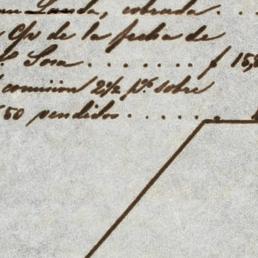 Landa, cobrada . .
Cp de la fecha de
Sosa . . . . . . . . f 15,
comision 2½ p% sobre
50 vendidos . . . . . .